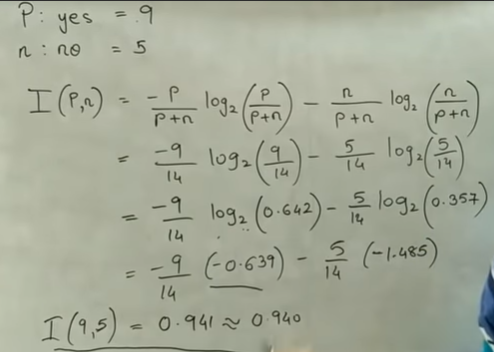 P: yes = 9
n: no = 5
I(P,n) = -P/P+n log₂(P/P+n) - n/P+n log₂(n/P+n)
= -9/14 log₂(9/14) - 5/14 log₂(5/14)
= -9/14 log₂(0.642) - 5/14 log₂(0.357)
= -9/14 (-0.639) - 5/14 (-1.485)
I(9,5) = 0.941 ≈ 0.940